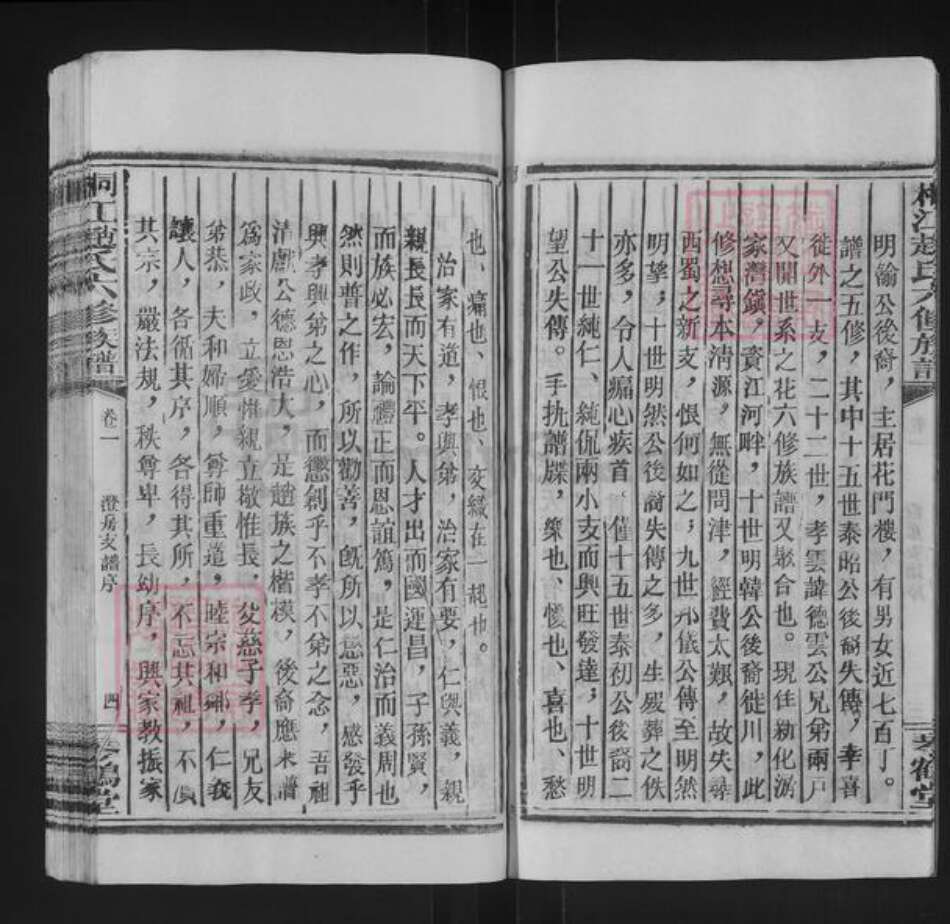 明綸公後裔，主居花門樓，有男女近七百丁。
譜之五修，其中十五世泰昭公後裔失傳，幸喜
徙外一支，二十二世，孝雲諱德雲公兄弟兩戶
又開世系之花六修族譜又聚合也。現住新化游
家灣鎭，資江河畔，十世明韓公後裔徙川，此
修想尋本淸源，無從問津，經費太艱，故失尋
西蜀之新支，恨何如之；九世 儀公傳至明然
明摯，十世明然公後裔失傳之多，生殁葬之佚
亦多，令人痛心疾首，僅十五世泰初公後裔二
十一世純仁、純侃兩小支而興旺發達；十世明
望公失傳。手执譜牒，樂也、懷也、喜也、愁
也、痛也、恨也、交織在一起也。
治家有道，孝與弟，治家有要，仁與義，親
親長長而天下平。人才出而國運昌，子孫賢，
而族必宏，論禮正而恩誼篤，是仁治而義周也
然則普之作，所以勸善，旣所以惩惡，感發乎
興孝興弟之心，而懲創乎不孝不弟之念，吾祖
淸獻公德恩浩大，是趙族之楷模，後裔應來譜
爲家政，立愛惟親立敬惟長，父慈子孝，兄友
弟恭，夫和婦順，尊師重道，睦宗和鄉，仁義
讓人，各循其序，各得其所，不忘其祖，不
其宗，嚴法規，秩尊卑，長幼序，興家教振家
桐江趙氏六修族譜
卷一
澄房支譜序
四
琴鶴堂
桐江趙氏六修族譜
琴鶴堂